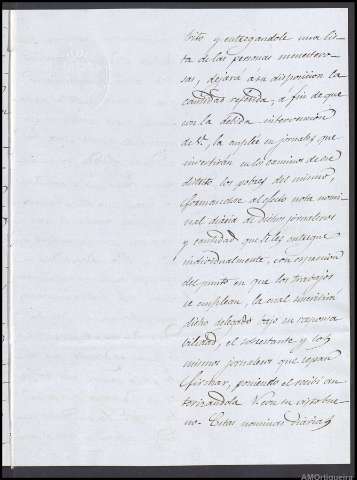 trito y entregandole una lis-
ta de las personas menestero-
sas, dejará a su disposicion la
cantidad referida, á fin de que
con la debida intervencion
de V., la emplee en jornales que
invertirán en los caminos de ese
distrito los pobres del mismo,
formandose al efecto nota nomi-
nal diaria de dichos jornaleros
y cantidad que se les entregue
individualmente, con expresion
del punto en que los trabajos
se emplean, la cual suscribirá
dicho delegado bajo su responsa
bilidad, el sobrestante y los
mismos jornaleros que sepan
firmar, poniendo el recibi au-
torizandola V. con su visto bue-
no. Estas nominas diarias
AMOrtigueira